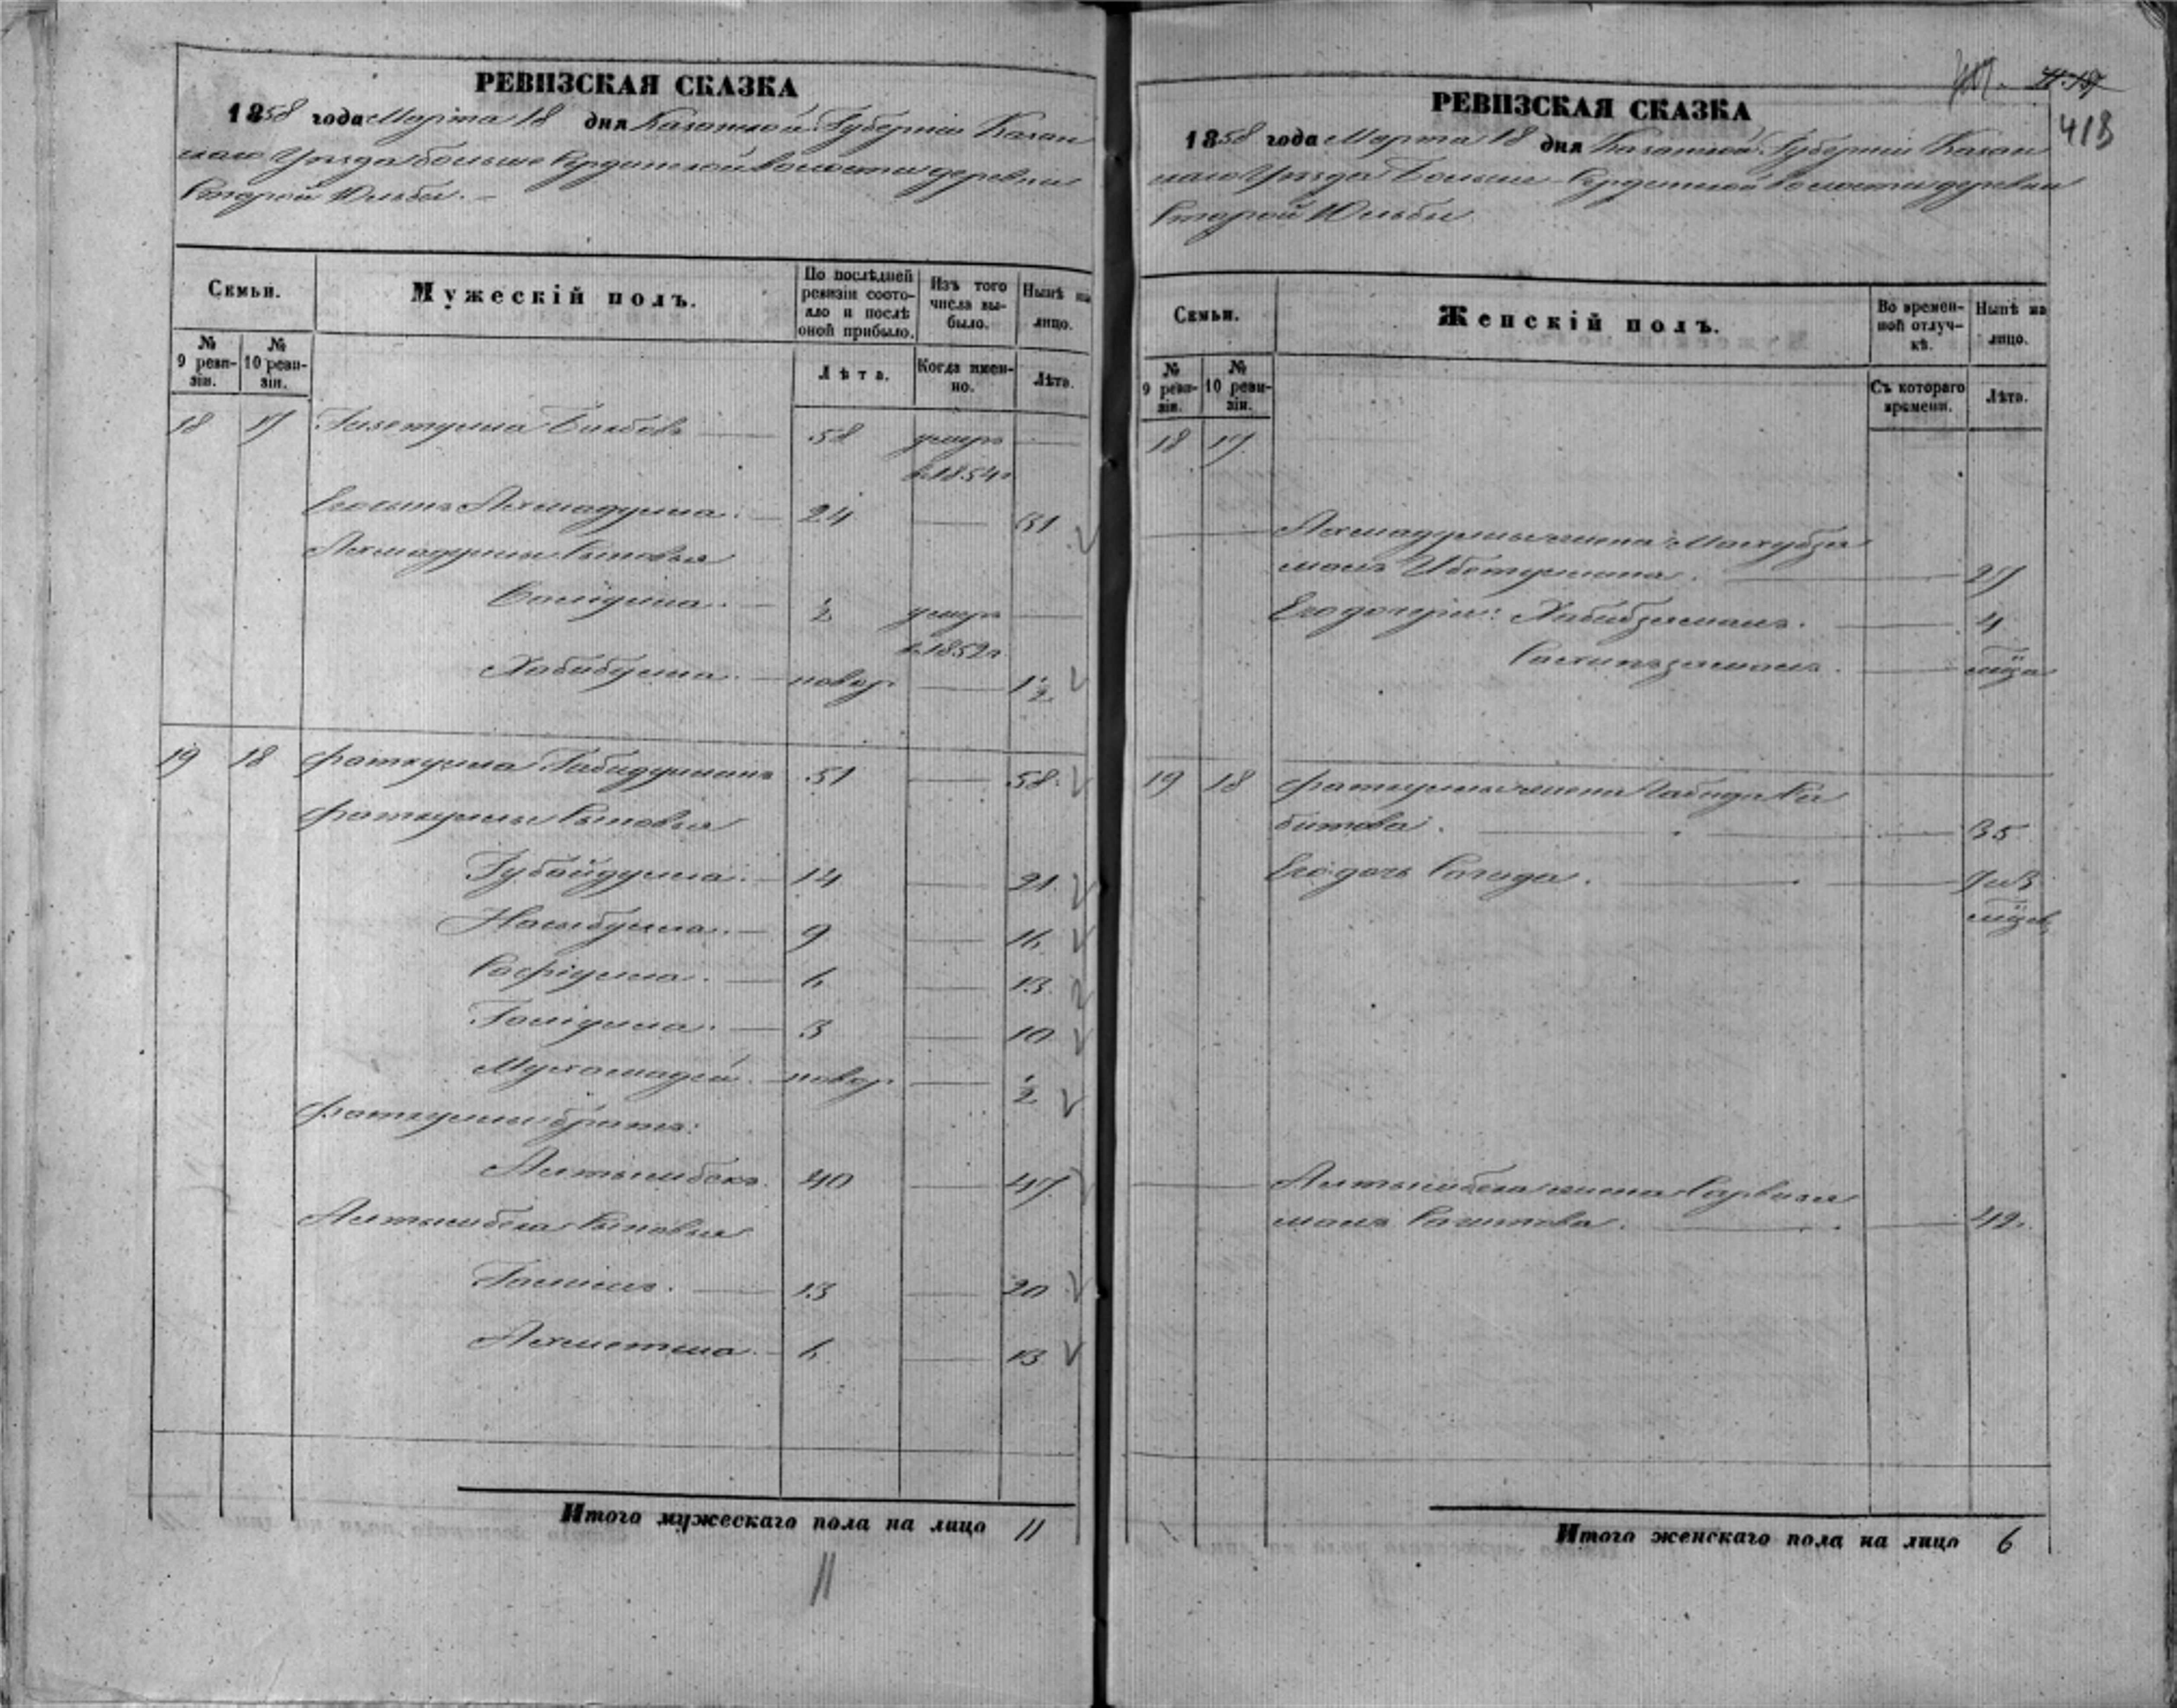 РЕВИЗСКАЯ СКАЗКА
1858 года Марта 18 дня Казанской Губернiи Казан
скаго Уѣзда Больше Сердинской волости деревни
Старой Юльбы. –
Семьи.
Мужескiй полъ.
По послѣдней ревизiи состо-
яло и послѣ оной прибыло.
Изъ того числа вы-
было.
Нынѣ на лицо.
№ 9 реви-
зiи.
№ 10 реви-
зiи.
Лѣта.
Когда имен-
но.
Лѣта.
18 17 58 умеръ
в 1854 г
Его сынъ Ахмадулла. 24 31
Ахмадуллы Сыновья
½ умеръ
в 1852 г
Хабибулла. новор. 1½
19 18 Фаткулла Габидуллинъ 51 58.
Фаткуллы Сыновья
Губайдулла. 14 21.
Насыбулла. 9 16
Сафiулла. 6 13.
Галiулла. 3 10
Мухамадей. новор. ½
Фаткуллы братъ:
Алтынбекъ. 40 47
Алтынбека Сыновья
13 20
Ахметша. 6. 13
Итого мужескаго пола на лицо 11
11
418
РЕВИЗСКАЯ СКАЗКА
1858 года Марта 18 дня Казанской Губернiи Казан
скаго Уѣзда Больше-Сердинской волости деревни
Старой Юльбы
Семьи.
Женскiй полъ.
Во времен-
ной отлуч-
кѣ.
Нынѣ на лицо.
№ 9 реви-
зiи.
№ 10 реви-
зiи.
Съ котораго времени.
Лѣта.
18 17.
Ахмадуллы жена Махубза
манъ 27
Его дочери: Хабибзаманъ. 4
19 18 Фаткуллы жена Габида Са
битова. 35
Его дочь 7 и 3
Алтынбека жена
манъ 42.
Итого женскаго пола на лицо 6